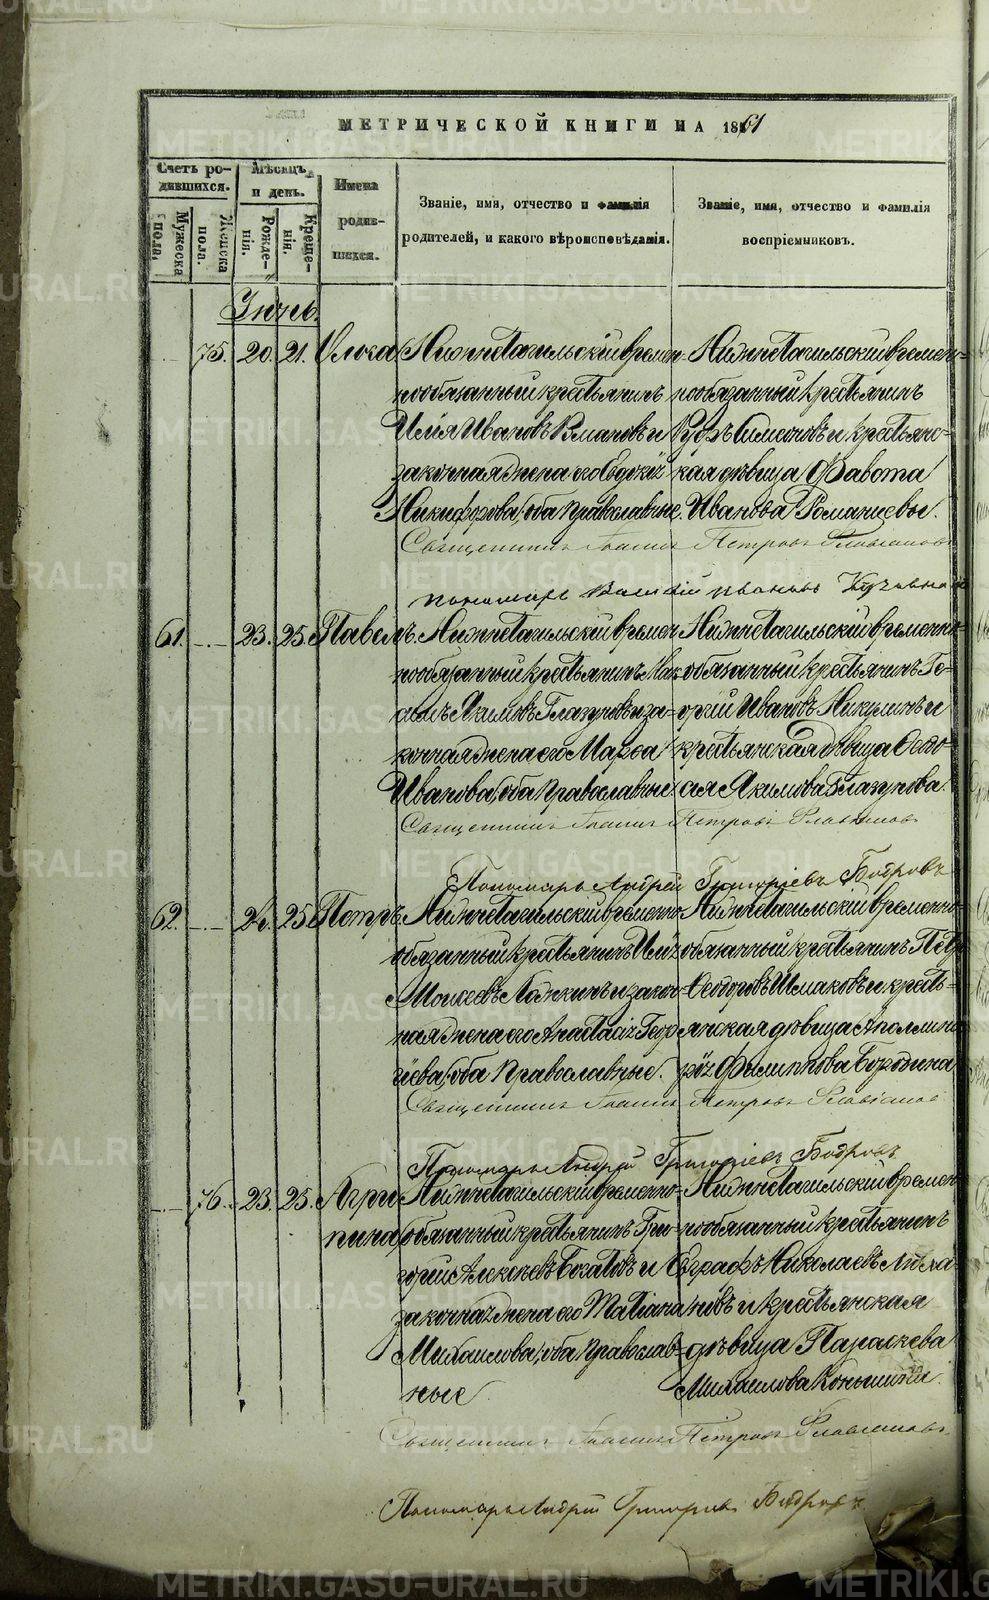 МЕТРИЧЕСКОЙ КНИГИ НА 1861
Счетъ ро-
дившихся.
Мужеска
пола.
Женска
пола.
Мѣсяцъ
и день.
Рожде-
нія.
Креще-
нія.
Имена
родив-
шихся.
Званіе, имя, отчество и фамилія
родителей, и какого вѣроисповѣданія.
Званіе, имя, отчество и фамилія
воспріемниковъ.
75. 20. 21.
Нижнетагильскій времен-
нообязанный крестьянинъ
Илія Ивановъ и
законная жена его
Никифорова, оба православные.
Нижнетагильскій времен-
нообязанный крестьянинъ
Симеоновъ и крестьян-
ская дѣвица
Иванова Романцевы.
Священникъ Іоаннъ Петровъ
пономарь Василій Ивановъ
61. 23. 25. Павелъ.
Нижнетагильскій времен-
нообязанный крестьянинъ Мак-
симъ Якимовъ Глазуновъ и за-
конная жена его Марѳа
Иванова, оба православные
Нижнетагильскій временно-
обязанный крестьянинъ Ге-
оргій Ивановъ Никулинъ и
крестьянская дѣвица Ѳедо-
сія Якимова Глазунова.
Священникъ Іоаннъ Петровъ
Пономарь Андрей Григоріевъ Бобровъ
62. 24. 25. Петръ.
Нижнетагильскій временно-
обязанный крестьянинъ Илія
Моисеевъ Ложкинъ и закон-
ная жена его Анастасія Геор-
гіева, оба православные.
Нижнетагильскій временно-
обязанный крестьянинъ Петръ
Ѳедоровъ Шмаковъ и кресть-
янская дѣвица Аполлина-
рія Филиппова Бородина
Священникъ Іоаннъ Петровъ
Пономарь Андрей Григоріевъ Бобровъ
76. 23. 25. Агри-
пина,
Нижнетагильскій временно-
обязанный крестьянинъ Гри-
горій Алексѣевъ Богатовъ и
законная жена его Татіана
Михаилова, оба православ-
ные.
Нижнетагильскій времен-
нообязанный крестьянинъ
Евграфъ Николаевъ
и крестьянская
дѣвица Параскева
Михаилова
Священникъ Іоаннъ Петровъ
Пономарь Андрей Григорьевъ Бобровъ
METRIKI.GASO-URAL.RU